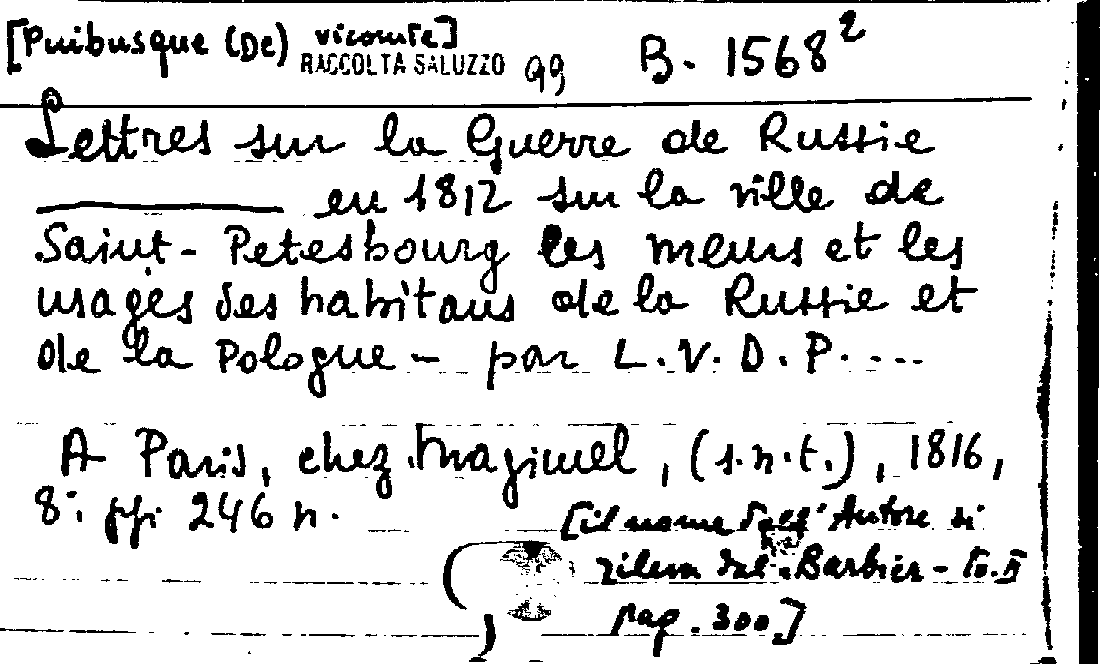 [Puibusque (De) vicomte] RACCOLTA SALUZZO 99 B. 1568²
Lettres sur la Guerre de Russie
en 1812 sur la ville de
Saint-Petesbourg les meurs et les
usages des habitans de la Russie et
de la Pologne - par L. V. D. P. ....
A Paris, chez Magimel, (s.n.t.), 1816,
8°; pp. 246 n.
[il nome dell'Autore si
rileva dal Barbier - to. II
pag. 300]